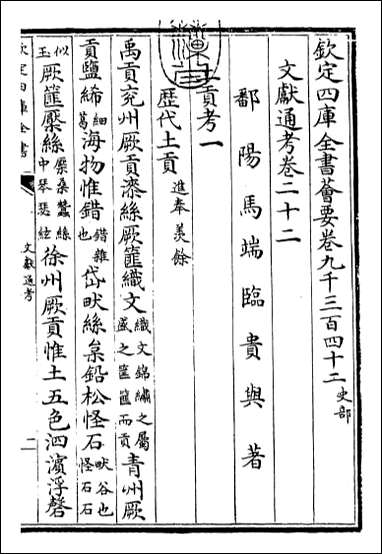 欽定四庫全書薈要卷九千三百四十二 史部
文獻通考卷二十二
鄱陽馬端臨貴與著
土貢考一
歷代土貢 進奉羨餘
禹貢兖州厥貢漆絲厥篚織文 織文錦繡之屬盛之筐篚而貢 青州厥
貢鹽絺 細葛 海物惟錯 錯雜也 岱畎絲枲鉛松怪石 畎谷也怪石石
似玉 厥篚檿絲 檿桑蠶絲中琴瑟絃 徐州厥貢惟土五色泗濵浮磬
欽定四庫全書
文獻通考